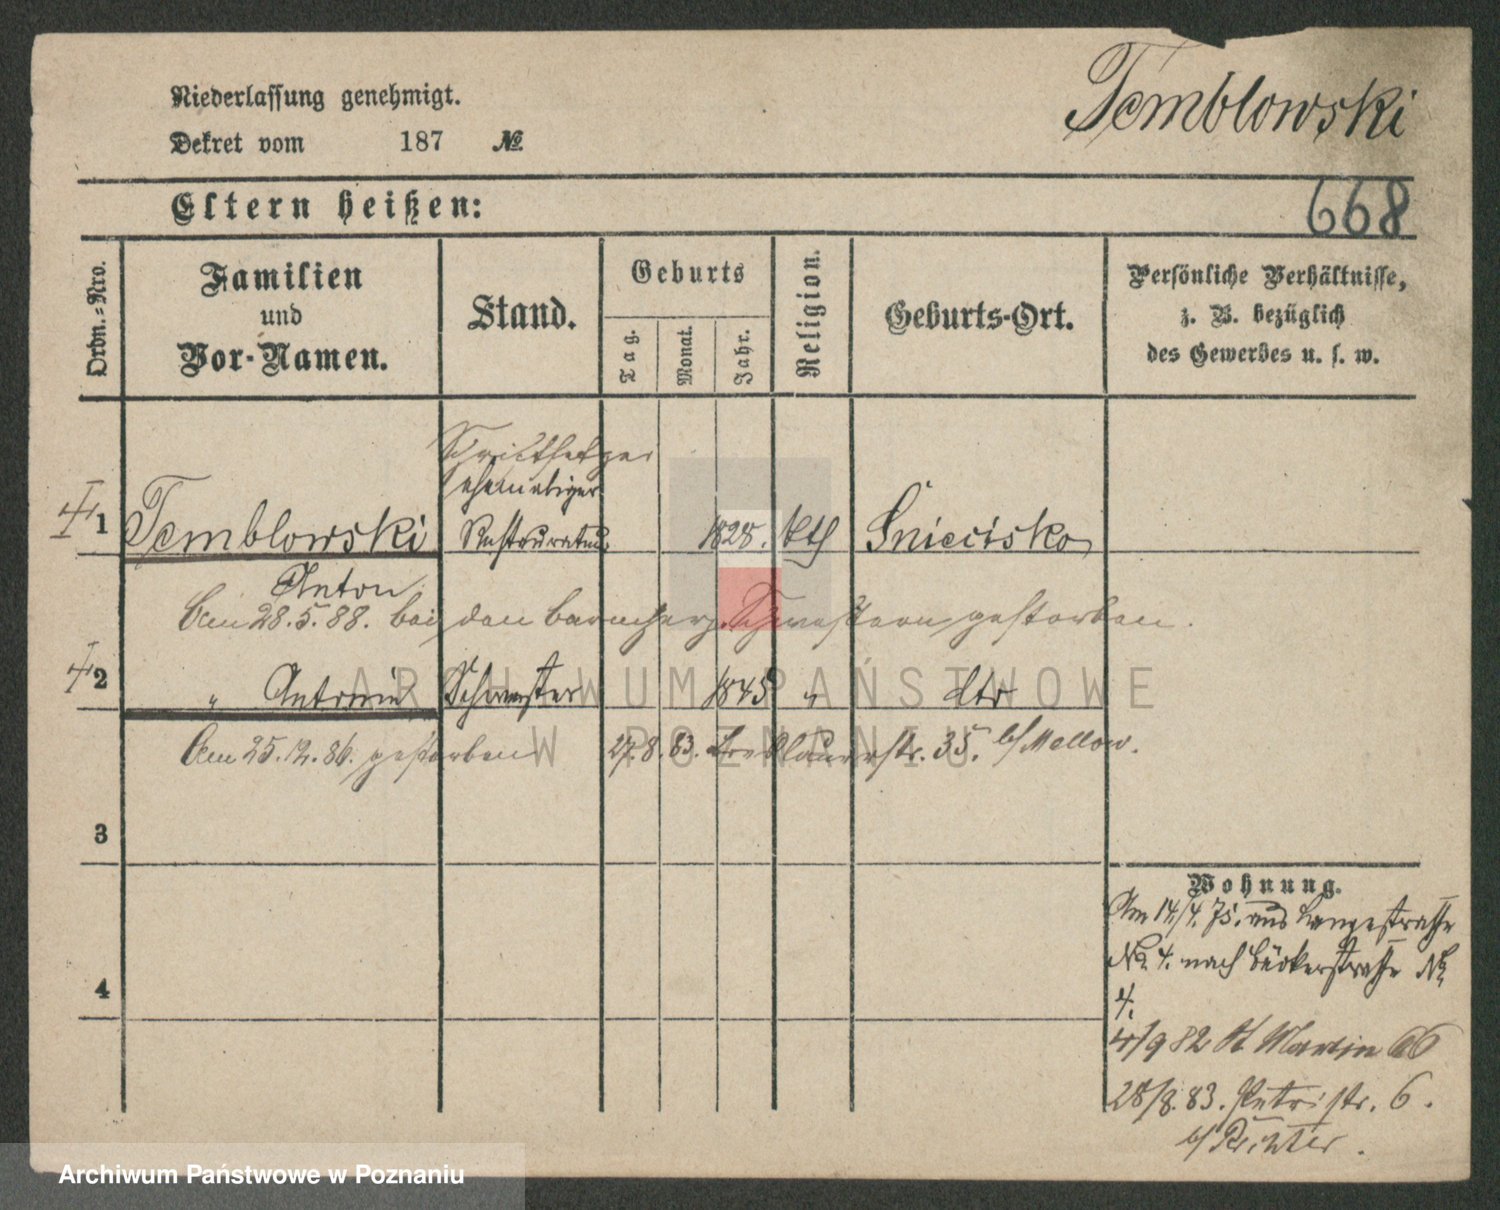 Niederlassung genehmigt.
Dekret vom 187 №
Temblowski
Eltern heißen:
668
Ordn.-Nro.
Familien
und
Vor-Namen.
Stand.
Geburts
Tag.
Monat.
Jahr.
Religion.
Geburts-Ort.
Persönliche Verhältnisse,
z. B. bezüglich
des Gewerbes u. s. w.
ehemaliger
1 Temblowski Restaurateur 1828. kth Śniecisko
Anton
Am 28.5.88. bei den barmherz. Schwestern gestorben.
2 " Antonie Schwester 1845 " dto
Am 25.12.86. gestorben 27.8.83. Breslauerstr. 35. b/ Mellow.
3
4
Wohnung.
Am 14/4. 75. aus Langestraße
No 4. nach Bäckerstraße No
4/9 82 St Martin 66
28/8. 83. Petristr. 6.
b/ Richter.
ARCHIWUM PAŃSTWOWE
W POZNANIU
Archiwum Państwowe w Poznaniu